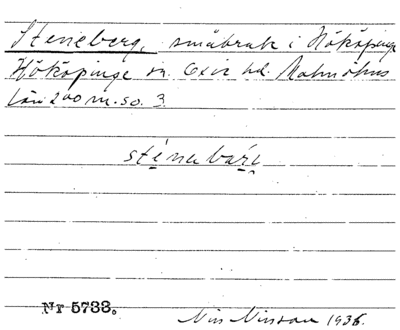 Steneberg, småbruk i Hököpinge
Hököpinge sn. Oxie hd. Malmöhus
län 200 m. so. 3.
sténabarj
Nr 5733.
Nils Nilsson 1936.